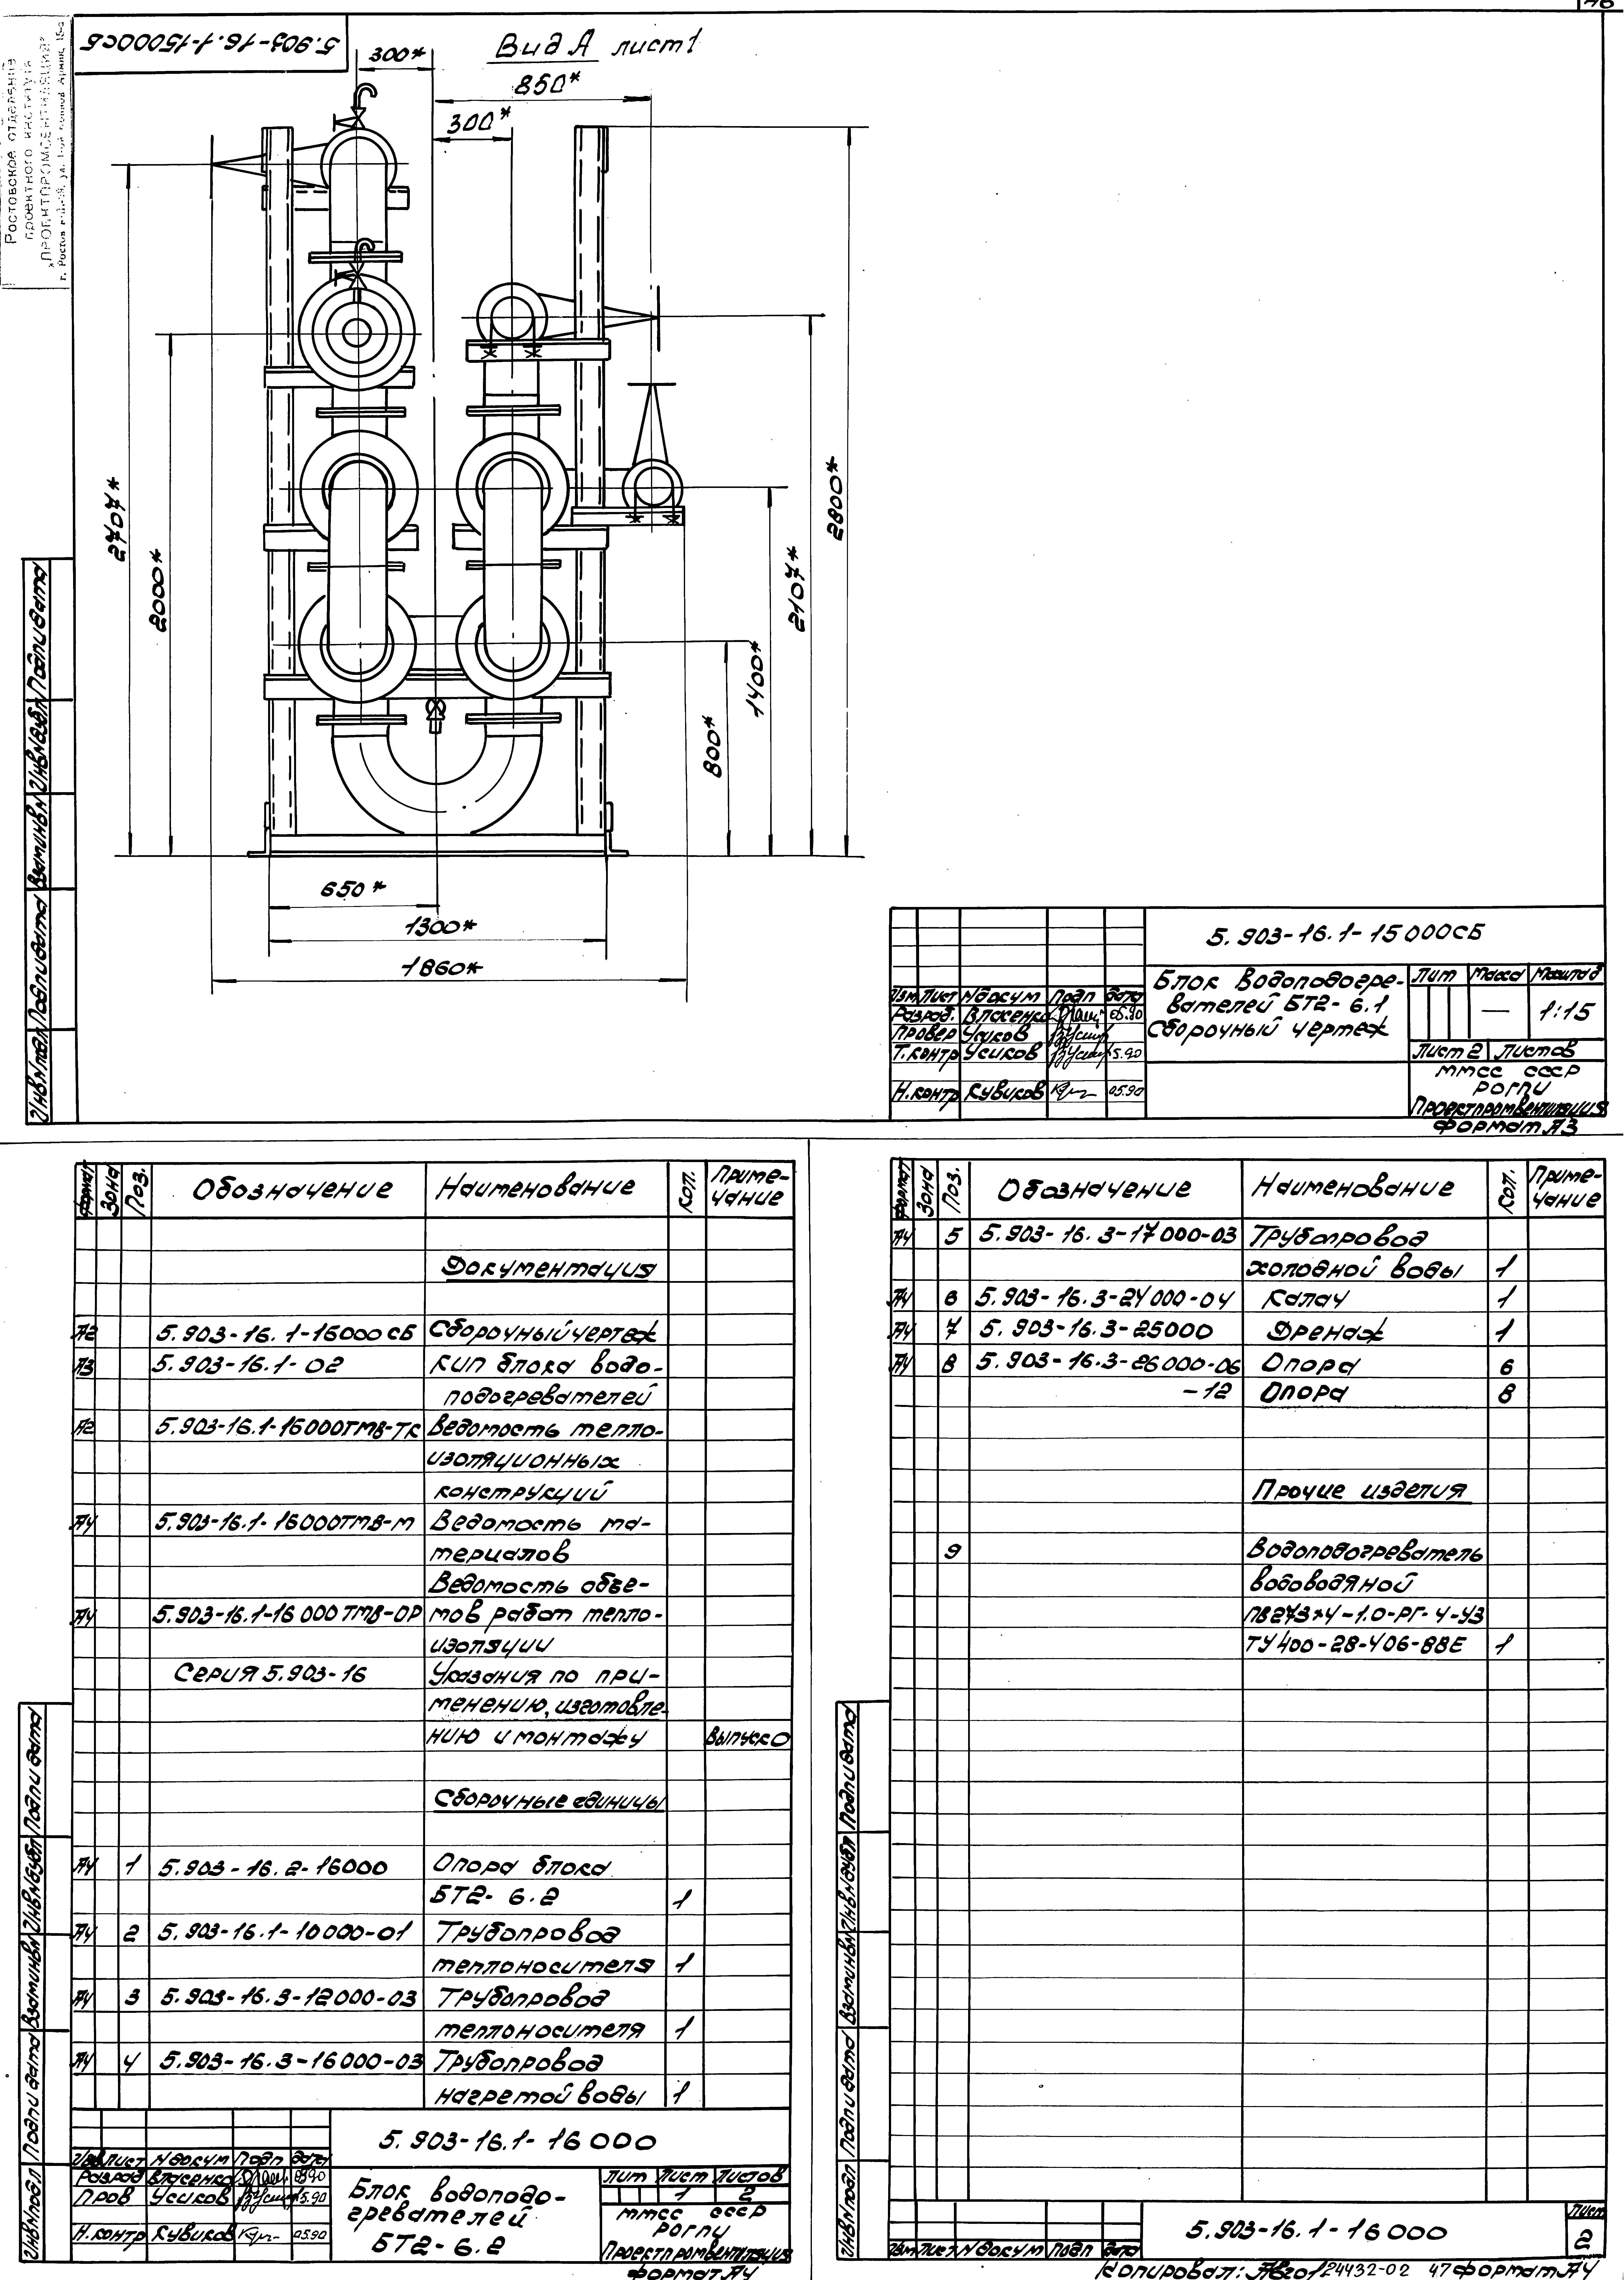 46
5.903-16.1-15000СБ
Ростовское отделение
проектного института
"ПРОЕКТПРОМВЕНТИЛЯЦИЯ"
Вид А лист1
300*
850*
300*
2707*
2000*
2800*
2107*
1400*
800*
650*
1300*
1860*
Инв№подл Подп и дата Взам инв№ Инв№дубл Подп и дата
5.903-16.1-15000СБ
Изм Лист № докум Подп Дата
Разраб. Власенко 05.90
Провер Усиков
Т.контр Усиков 5.90
Н.контр Кувиков 05.90
Блок водоподогре-
вателей БТ2-6.1
Сборочный чертеж
Лит Масса Масштаб
— 1:15
Лист 2 Листов
ММСС СССР
РОГПИ
Проектпромвентиляция
Формат А3
Формат Зона Поз. Обозначение Наименование Кол. Приме-
чание
Документация
А2 5.903-16.1-16000СБ Сборочный чертеж
А3 5.903-16.1-02 КИП блока водо-
подогревателей
А2 5.903-16.1-16000ТМВ-ТК Ведомость тепло-
изоляционных
конструкций
А4 5.903-16.1-16000ТМВ-М Ведомость ма-
териалов
Ведомость объе-
А4 5.903-16.1-16000ТМВ-ОР мов работ тепло-
изоляции
Серия 5.903-16 Указания по при-
менению, изготовле-
нию и монтажу Выпуск 0
Сборочные единицы
А4 1 5.903-16.2-16000 Опора блока
БТ2-6.2 1
А4 2 5.903-16.1-10000-01 Трубопровод
теплоносителя 1
А4 3 5.903-16.3-12000-03 Трубопровод
теплоносителя 1
А4 4 5.903-16.3-16000-03 Трубопровод
нагретой воды 1
Инв№подл Подп и дата Взам инв№ Инв№дубл Подп и дата
5.903-16.1-16000
Изм Лист № докум Подп Дата
Разраб Власенко 05.90
Пров Усиков 5.90
Н.контр Кувиков 05.90
Блок водоподо-
гревателей
БТ2-6.2
Лит Лист Листов
1 2
ММСС СССР
РОГПИ
Проектпромвентиляция
Формат А4
Формат Зона Поз. Обозначение Наименование Кол. Приме-
чание
А4 5 5.903-16.3-17000-03 Трубопровод
холодной воды 1
А4 6 5.903-16.3-24000-04 Калач 1
А4 7 5.903-16.3-25000 Дренаж 1
А4 8 5.903-16.3-26000-06 Опора 6
-12 Опора 8
Прочие изделия
9 Водоподогреватель
водоводяной
ПВ273х4-1.0-РГ-4-У3
ТУ400-28-406-88Е 1
Инв№подл Подп и дата Взам инв№ Инв№дубл Подп и дата
Изм Лист № докум Подп Дата
5.903-16.1-16000
Лист
2
Копировал: 24432-02 47 Формат А4